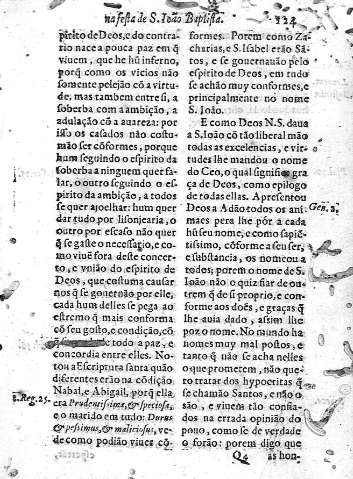 na festa de S. Ioão Baptista. 124
pirito de Deos, e do contra-
rio nace a pouca paz em q̃
viuem, que he hũ inferno,
porq̃ como os vicios não
somente pelejão cõ a virtu-
de, mas tambem entre si, a
soberba com a ambição, a
adulação cõ a auareza: por
isso os casados não costu-
mão ser cõformes, porque
hum seguindo o espirito da
soberba a ninguem quer fa-
lar, o outro seguindo o es-
pirito da ambição, a todos
se quer ajoelhar: hum quer
dar tudo por lisonjearia, o
outro por escaso não quer
q̃ se gaste o necessario, e co-
mo viuẽ fora deste concer-
to, e vnião do espirito de
Deos, que costuma causar
nos q̃ se gouernão por elle,
cada hum delles se pega ao
estremo q̃ mais conforma
cõ seu gosto, e condição, cõ
q̃ de toda a paz, e
concordia entre elles. No-
tou a Escriptura santa quão
diferentes erão na cõdição
8. Reg. 25. Nabal, e Abigail, porq̃ ella
era Prudentissima, & speciosa,
e o marido em tudo: Durus
& pessimus, & maliciosus, ve-
de como podião viuer cõ-
formes. Porem como Za-
charias, e S. Isabel erão Sã-
tos, e se gouernauão pelo
espirito de Deos, em tudo
se achão muy conformes, e
principalmente no nome
S. Ioão.
E como Deos N. S. daua
a S. Ioão cõ tão liberal mão
todas as excelencias, e vir-
tudes lhe mandou o nome
do Ceo, o qual significa gra
ça de Deos, como epilogo
de todas ellas. Apresentou
Deos a Adão todos os ani- Gen. 2.
maes pera lhe pór a cada
hũ seu nome, e como sapiẽ-
tissimo, cõforme a seu ser,
e substancia, os nomeou a
todos; porem o nome de S.
Ioão não o quiz fiar de ou-
trem q̃ de si proprio, e con-
forme aos dões, e graças q̃
lhe auia dado, assim lhe
poz o nome. No mundo ha
nomes muy mal postos, e
tanto q̃ não se acha nelles
o que prometem, não que-
ro tratar dos hypocritas q̃
se chamão Santos, e não o
são, e viuem tão confia-
dos na errada opinião do
pouo, como se de verdade
o forão: porem digo que
Q4 as hon-